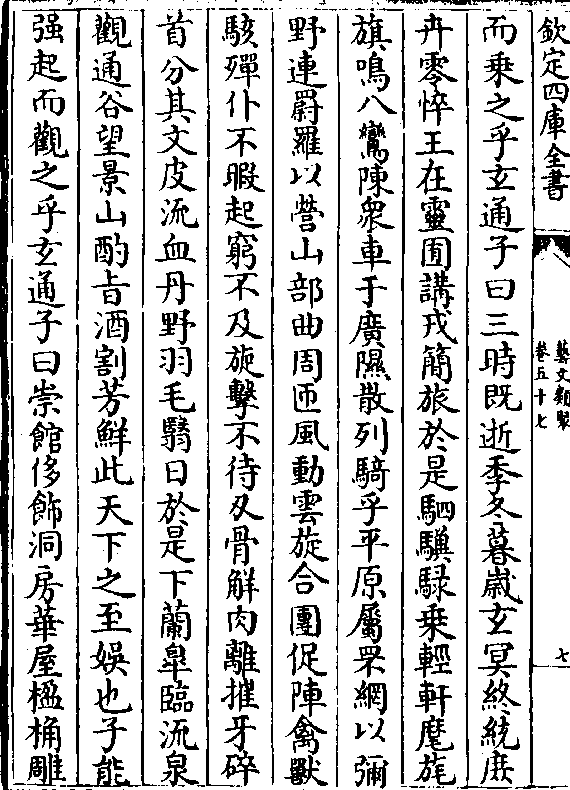 欽定四庫全書
藝文類聚
卷五十七
七
而乗之乎玄通子曰三時既逝季冬暮嵗玄冥終統庶
卉零悴王在靈囿講戎簡旅於是駟驥騄乗輕軒麾旄
旗鳴八鸞陳衆車于廣隰散列騎乎平原屬罘網以彌
野連罻羅以營山部曲周匝風動雲旋合團促陣禽獸
駭殫仆不暇起窮不及旋擊不待刄骨解肉離摧牙碎
首分其文皮流血丹野羽毛翳日於是下蘭臯臨流泉
觀通谷望景山酌旨酒割芳鮮此天下之至娛也子能
强起而觀之乎玄通子曰崇館侈飾洞房華屋楹桷雕